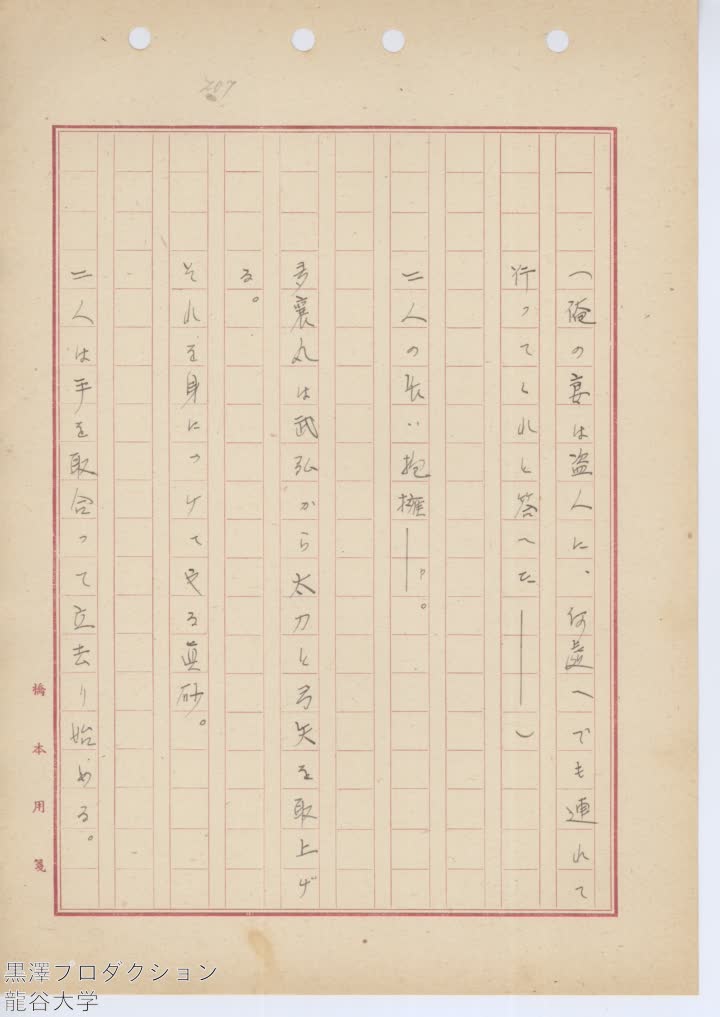 207
(俺の妻は盗人に、何處へでも連れて
行ってくれと答へた――)
二人の長い抱擁――。
多襄丸は武弘から太刀と弓矢を取上げ
る。
それを身につけてやる眞砂。
二人は手を取合って立去り始める。
橋本用箋
黒澤プロダクション
龍谷大学